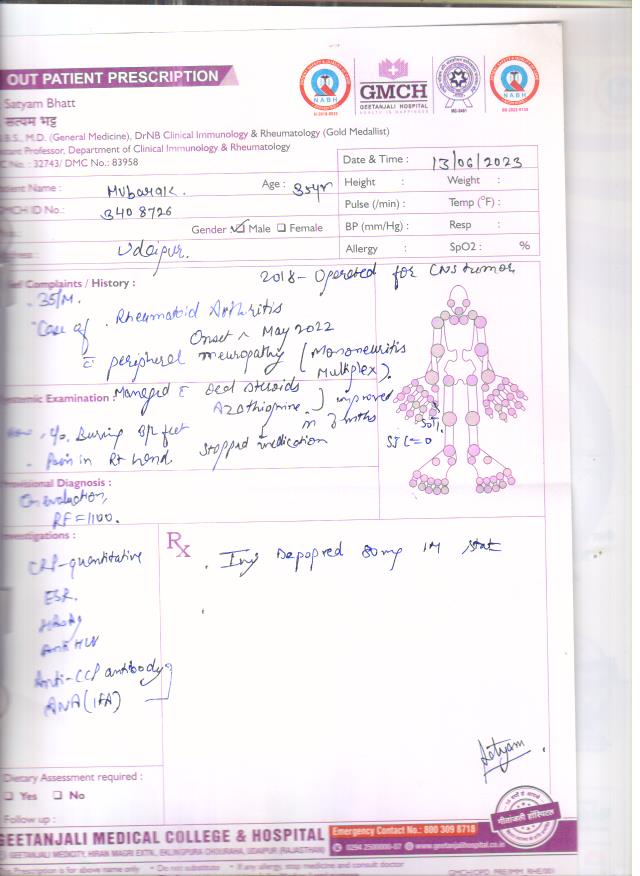 OUT PATIENT PRESCRIPTION
NABH
H-2018-0535
GMCH
GEETANJALI HOSPITAL
HEALTH IN HAPPINESS
NABH
Satyam Bhatt
सत्यम भट्ट
B.S., M.D. (General Medicine), DrNB Clinical Immunology & Rheumatology (Gold Medallist)
stant Professor, Department of Clinical Immunology & Rheumatology
C No. : 32743/ DMC No.: 83958
Date & Time : 13/06/2023
tient Name : Mubarak. Age : 35yr
Height : Weight :
MCH ID No.: 3408726
Pulse (/min) : Temp (°F) :
Gender ☑ Male ☐ Female
BP (mm/Hg) : Resp :
ress : Udaipur.
Allergy : SpO2 : %
ief Complaints / History : 2018- Operated for CNS tumor,
. 35/M.
Case of . Rheumatoid Arthritis
Onset ~ May 2022
c̄ peripheral neuropathy (Mononeuritis
Multiplex).
stemic Examination : Managed c̄ oral steroids
Azathioprine. } improved
in 2 mths
Now . c/o. Burning B/L feet
stopped medication
- Pain in Rt hand.
SJC=0
rovisional Diagnosis :
On evaluation,
RF = 1100.
nvestigations :
Rx
. Inj Depopred 80mg IM stat
CRP-quantitative
ESR.
HBsAg
Anti HCV
Anti-CCP antibody
ANA (IFA)
Satyam
Dietary Assessment required :
☐ Yes ☐ No
Follow up :
गीतांजली हॉस्पिटल
GEETANJALI MEDICAL COLLEGE & HOSPITAL
Emergency Contact No.: 800 309 8718
GEETANJALI MEDICITY, HIRAN MAGRI EXTN., EKLINGPURA CHOURAHA, UDAIPUR (RAJASTHAN)
0294 2500000-07 www.geetanjalihospital.co.in
This Prescription is for above name only • Do not substitute • If any allergy, stop medicine and consult doctor